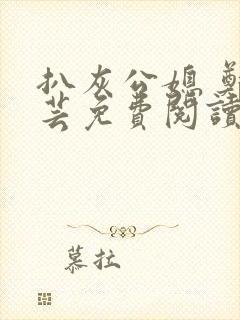 扒灰公媳
芸免費閱讀
慕拉